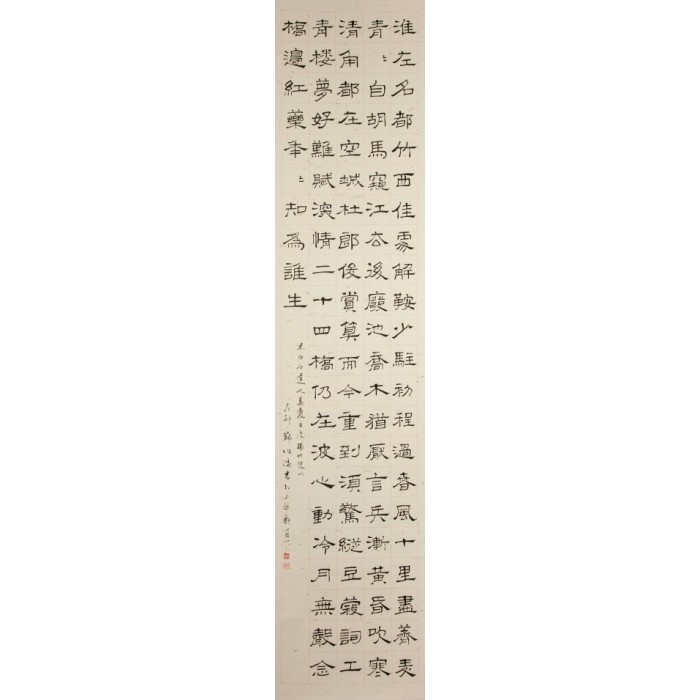 淮左名都竹西佳處解鞍少駐初程過春風十里盡薺麦
青〻自胡馬窺江去後廢池喬木猶厭言兵漸黃昏吹寒
清角都在空城杜郎俊賞算而今重到須驚縱豆蔻詞工
青楼夢好難賦深情二十四橋仍在波心動冷月無聲念
橋邊紅藥年〻知為誰生
白石道人姜夔自度揚州慢